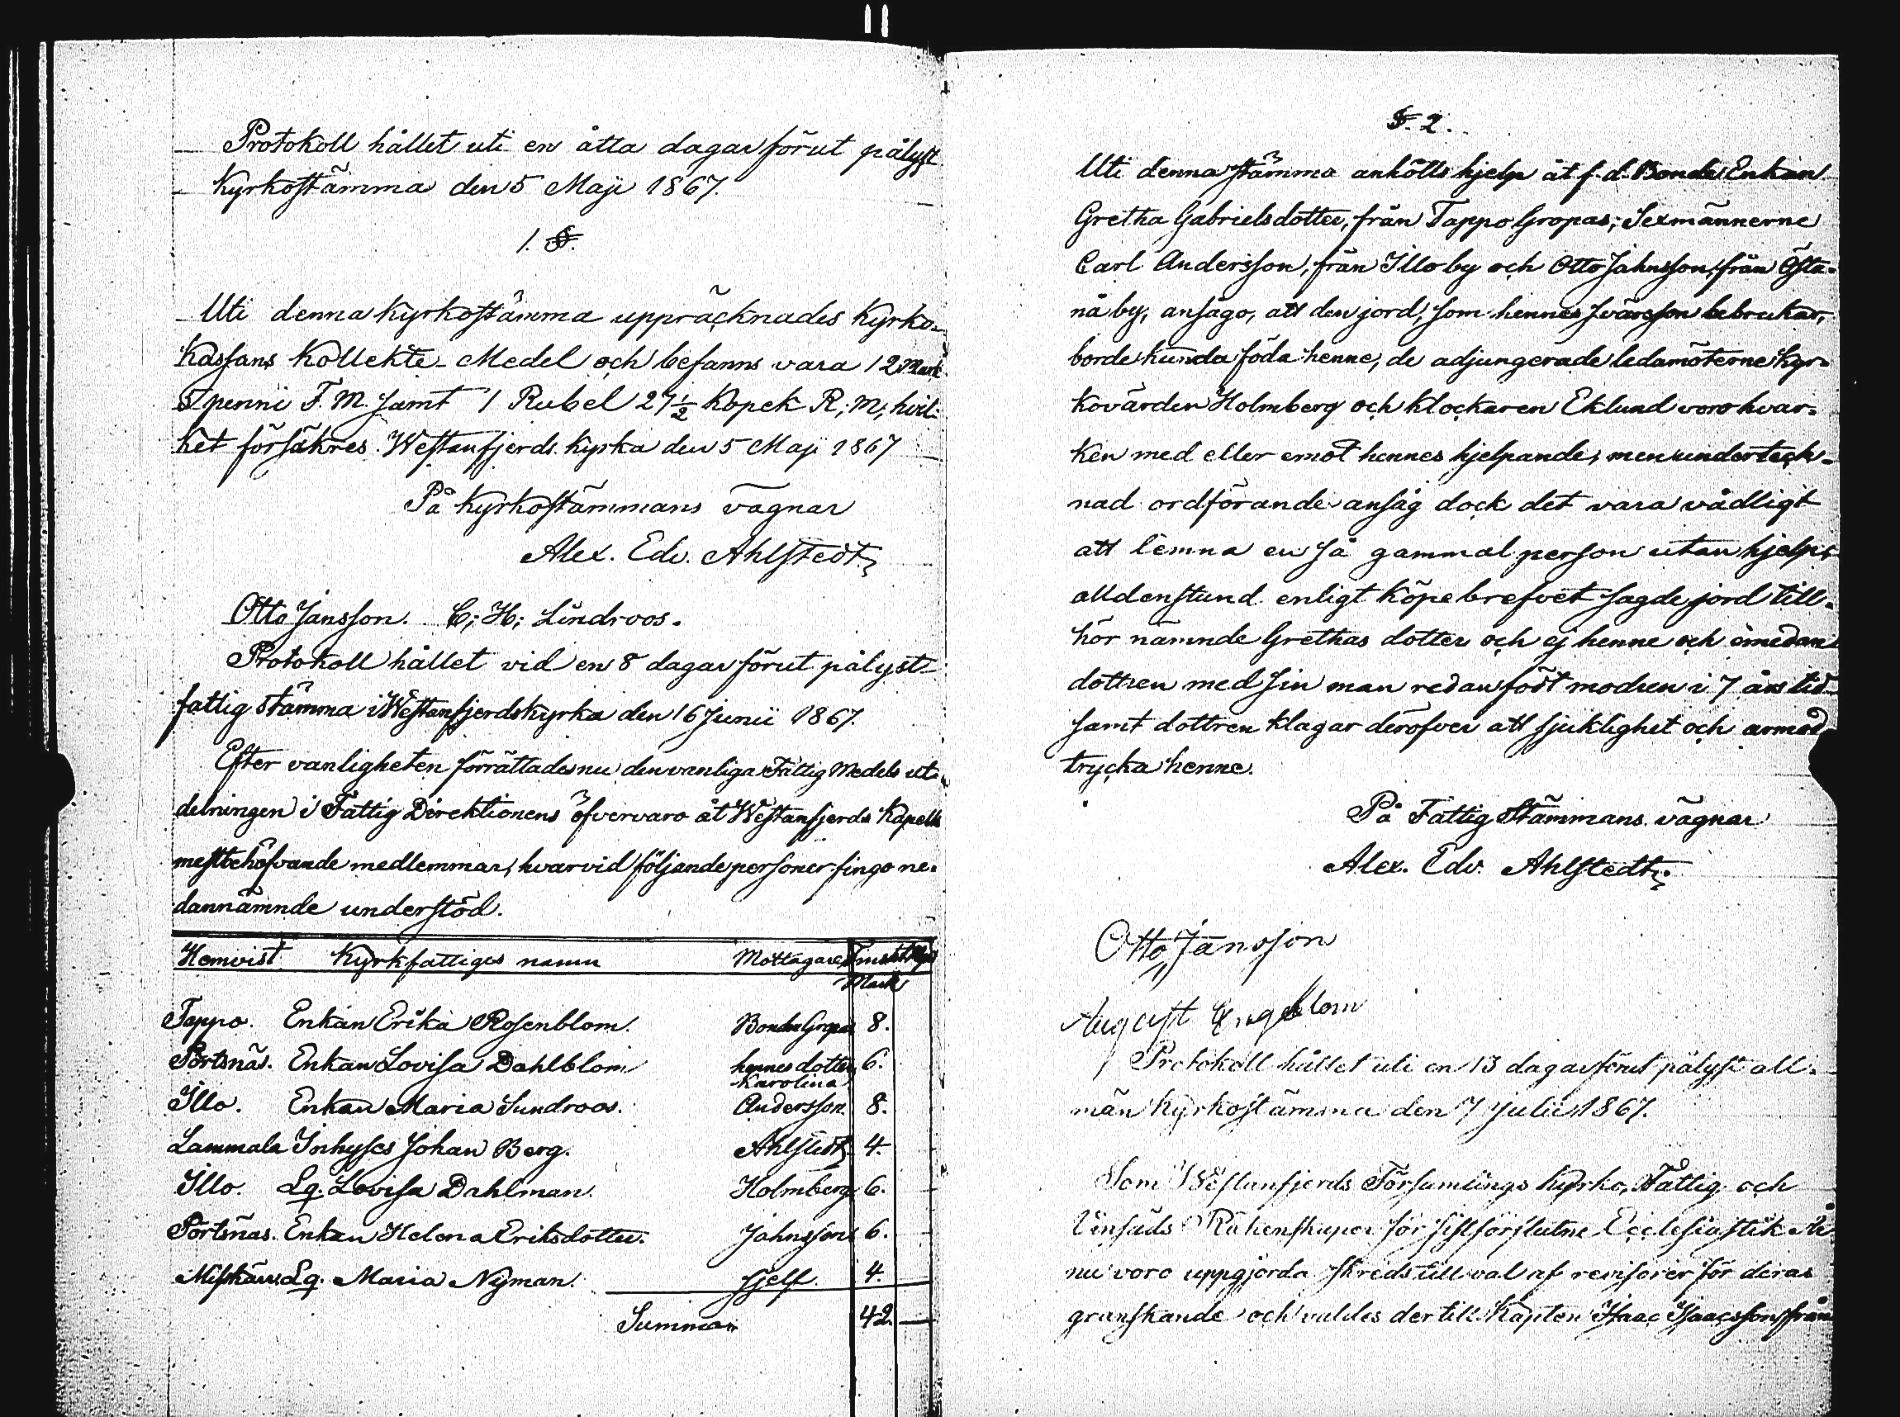 Protokoll hållet uti en åtta dagar förut pålyst
Kyrkostämma den 5 Maji 1867.
1. §.
Uti denna Kyrkostämma uppräcknades Kyrko-
Kassans Kollekte-Medel och befanns vara 12 Mark
5 penni F. M. samt 1 Rubel 27½ Kopek R; M; hvil-
ket försäkres. Westanfjerds Kyrka den 5 Maji 1867
På Kyrkostämmans vägnar
Alex. Edv. Ahlstedt
Otto Jansson. C; H; Lindroos.
Protokoll hållet vid en 8 dagar förut pålyst
fattig stämma i Westanfjerds Kyrka den 16 Junii 1867.
Efter vanligheten förrättades nu den vanliga Fattig Medels ut-
delningen i Fattig Direktionens öfvervaro åt Westanfjerds Kapells
mestbehöfvande medlemmar, hvarvid följande personer fingo ne-
dannämnde understöd.
Hemvist Kyrkfattiges namn Mottagare Finskt
Mark
Tappo. Enkan Erika Rosenblom. Bonden Gropas 8.
Pörtsnäs. Enkan Lovisa Dahlblom hennes dotter Karolina 6.
Illo. Enkan Maria Sundroos. Andersson 8.
Lammala Inhyses Johan Berg. Ahlstedt 4.
Illo. Lq. Lovisa Dahlman. Holmberg 6.
Pörtsnäs. Enkan Helena Eriksdotter. Jahnsson 6.
Misskärr Lq. Maria Nyman. sjelf. 4.
Summa 42.
§. 2.
Uti denna stämma anhölts hjelp åt f. d. Bonde Enkan
Gretha Gabrielsdotter, från Tappo Gropas; Sexmännerne
Carl Andersson, från Illo by och Otto Jahnsson, från Östa-
nå by, ansågo, att den jord, som hennes svärson bebrukar,
borde kunda föda henne, de adjungerade ledamöterne Kyr-
kovärden Holmberg och klockaren Eklund voro hvar-
ken med eller emot hennes hjelpande, men underteck-
nad ordförande ansåg dock det vara vådligt
att lemna en så gammal person utan hjelp,
alldenstund enligt köpebrefvet sagde jord till-
hör nämnde Grethas dotter och ej henne och emedan
dottren med sin man redan födt modren i 7 års tid
samt dottren klagar deröfver att sjuklighet och armod
trycka henne.
På Fattig Stämmans vägnar
Alex. Edv. Ahlstedt
Otto Jansson
August Engblom
Protokoll hållet uti en 13 dagar förut pålyst all-
män Kyrkostämma den 7 Julii 1867.
Som Westanfjerds Församlings Kyrko, Fattig och
Linsäds Räkenskaper för sistförflutne Ecclesiastik År
nu voro uppgjorda skreds till val af revisorer för deras
granskande och valdes dertill Kapten Isaac Isaacsson från